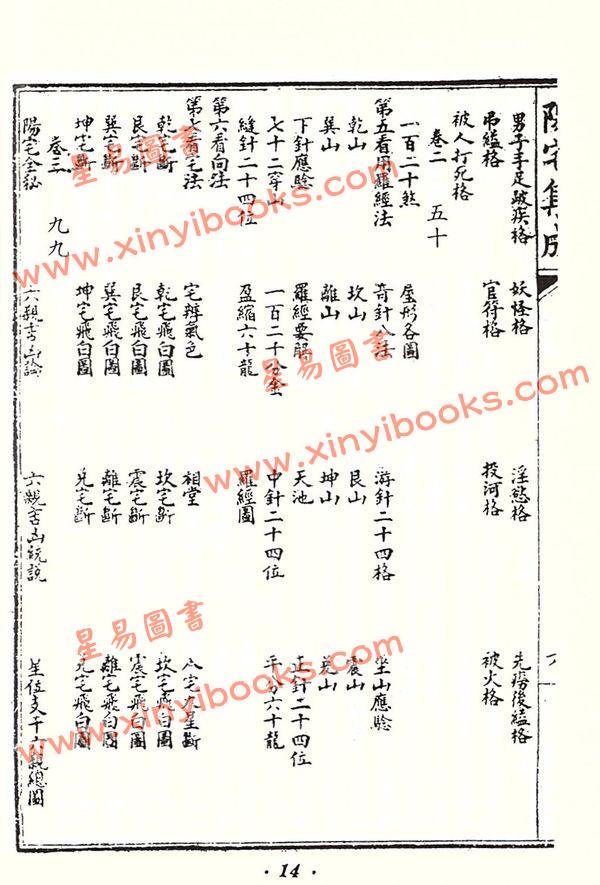 陽宅集成
男子手足跛疾格 妖怪格 淫慾格 先癆後縊格
吊縊格 官符格 投河格 被火格
被人打死格
卷二 五十
一百二十煞 屋形各圖
第五看用羅經法 奇針八法 游針二十四格 坐山應驗
乾山 坎山 艮山 震山
巽山 離山 坤山 兌山
下針應驗 羅經要解 天池 正針二十四位
七十二穿山 一百二十分金 中針二十四位 平分六十龍
縫針二十四位 盈縮六十龍 羅經圖
第六看向法
第七看宅法 宅辨氣色 相堂 八宅九星斷
乾宅斷 乾宅飛白圖 坎宅斷 坎宅飛白圖
艮宅斷 艮宅飛白圖 震宅斷 震宅飛白圖
巽宅斷 巽宅飛白圖 離宅斷 離宅飛白圖
坤宅斷 坤宅飛白圖 兌宅斷 兌宅飛白圖
卷三 九九
陽宅全秘 六親吉凶論 六親吉凶統說 星位支干六親總圖
· 14 ·
星易圖書
www.xinyibooks.com
星易圖書
www.xinyibooks.com
星易圖書
www.xinyibooks.com